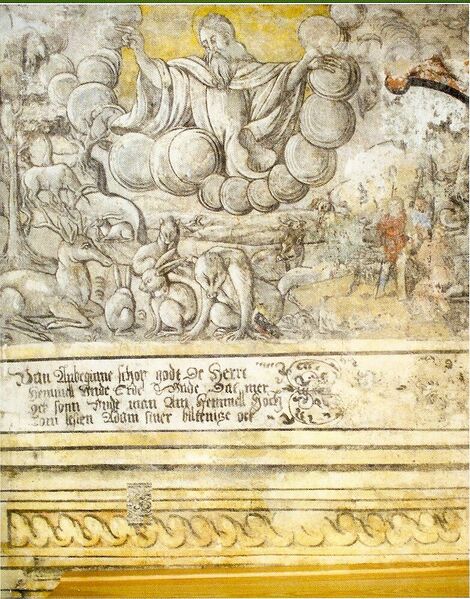 Van Anbeginne schop godt De Herre
Hemmel Unde Erde Unde Dat mer
gek sonn Unde man Am Hemmell Hoch
tom lesten Adam siner biltenisse gek